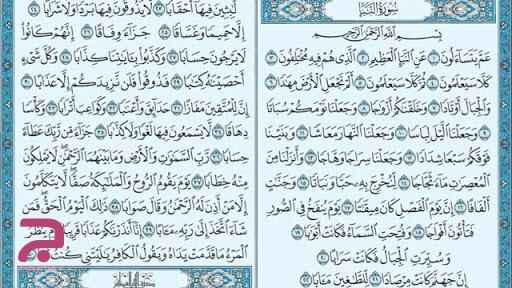 سُورَةُ النَّبَإِ
بِسْمِ اللَّهِ الرَّحْمَٰنِ الرَّحِيمِ
عَمَّ يَتَسَاءَلُونَ ١ عَنِ النَّبَإِ الْعَظِيمِ ٢ الَّذِي هُمْ فِيهِ مُخْتَلِفُونَ ٣
كَلَّا سَيَعْلَمُونَ ٤ ثُمَّ كَلَّا سَيَعْلَمُونَ ٥ أَلَمْ نَجْعَلِ الْأَرْضَ مِهَٰدًا ٦
وَالْجِبَالَ أَوْتَادًا ٧ وَخَلَقْنَٰكُمْ أَزْوَٰجًا ٨ وَجَعَلْنَا نَوْمَكُمْ سُبَاتًا
٩ وَجَعَلْنَا الَّيْلَ لِبَاسًا ١٠ وَجَعَلْنَا النَّهَارَ مَعَاشًا ١١ وَبَنَيْنَا
فَوْقَكُمْ سَبْعًا شِدَادًا ١٢ وَجَعَلْنَا سِرَاجًا وَهَّاجًا ١٣ وَأَنزَلْنَا مِنَ
الْمُعْصِرَٰتِ مَاءً ثَجَّاجًا ١٤ لِّنُخْرِجَ بِهِ حَبًّا وَنَبَاتًا ١٥ وَجَنَّٰتٍ
أَلْفَافًا ١٦ إِنَّ يَوْمَ الْفَصْلِ كَانَ مِيقَٰتًا ١٧ يَوْمَ يُنفَخُ فِي الصُّورِ
فَتَأْتُونَ أَفْوَاجًا ١٨ وَفُتِحَتِ السَّمَاءُ فَكَانَتْ أَبْوَٰبًا ١٩
وَسُيِّرَتِ الْجِبَالُ فَكَانَتْ سَرَابًا ٢٠
إِنَّ جَهَنَّمَ كَانَتْ مِرْصَادًا ٢١ لِّلطَّٰغِينَ مَـَٔابًا ٢٢
لَّٰبِثِينَ فِيهَا أَحْقَابًا ٢٣ لَّا يَذُوقُونَ فِيهَا بَرْدًا وَلَا شَرَابًا ٢٤
إِلَّا حَمِيمًا وَغَسَّاقًا ٢٥ جَزَاءً وِفَاقًا ٢٦ إِنَّهُمْ كَانُوا
لَا يَرْجُونَ حِسَابًا ٢٧ وَكَذَّبُوا بِـَٔايَٰتِنَا كِذَّابًا ٢٨ وَكُلَّ شَيْءٍ
أَحْصَيْنَٰهُ كِتَٰبًا ٢٩ فَذُوقُوا فَلَن نَّزِيدَكُمْ إِلَّا عَذَابًا ٣٠
إِنَّ لِلْمُتَّقِينَ مَفَازًا ٣١ حَدَائِقَ وَأَعْنَٰبًا ٣٢ وَكَوَاعِبَ أَتْرَابًا ٣٣ وَكَأْسًا
دِهَاقًا ٣٤ لَّا يَسْمَعُونَ فِيهَا لَغْوًا وَلَا كِذَّٰبًا ٣٥ جَزَاءً مِّن رَّبِّكَ عَطَاءً
حِسَابًا ٣٦ رَّبِّ السَّمَٰوَٰتِ وَالْأَرْضِ وَمَا بَيْنَهُمَا الرَّحْمَٰنِ لَا يَمْلِكُونَ
مِنْهُ خِطَابًا ٣٧ يَوْمَ يَقُومُ الرُّوحُ وَالْمَلَٰئِكَةُ صَفًّا لَّا يَتَكَلَّمُونَ
إِلَّا مَنْ أَذِنَ لَهُ الرَّحْمَٰنُ وَقَالَ صَوَابًا ٣٨ ذَٰلِكَ الْيَوْمُ الْحَقُّ فَمَن
شَاءَ اتَّخَذَ إِلَىٰ رَبِّهِ مَـَٔابًا ٣٩ إِنَّا أَنذَرْنَٰكُمْ عَذَابًا قَرِيبًا يَوْمَ يَنظُرُ
الْمَرْءُ مَا قَدَّمَتْ يَدَاهُ وَيَقُولُ الْكَافِرُ يَٰلَيْتَنِي كُنتُ